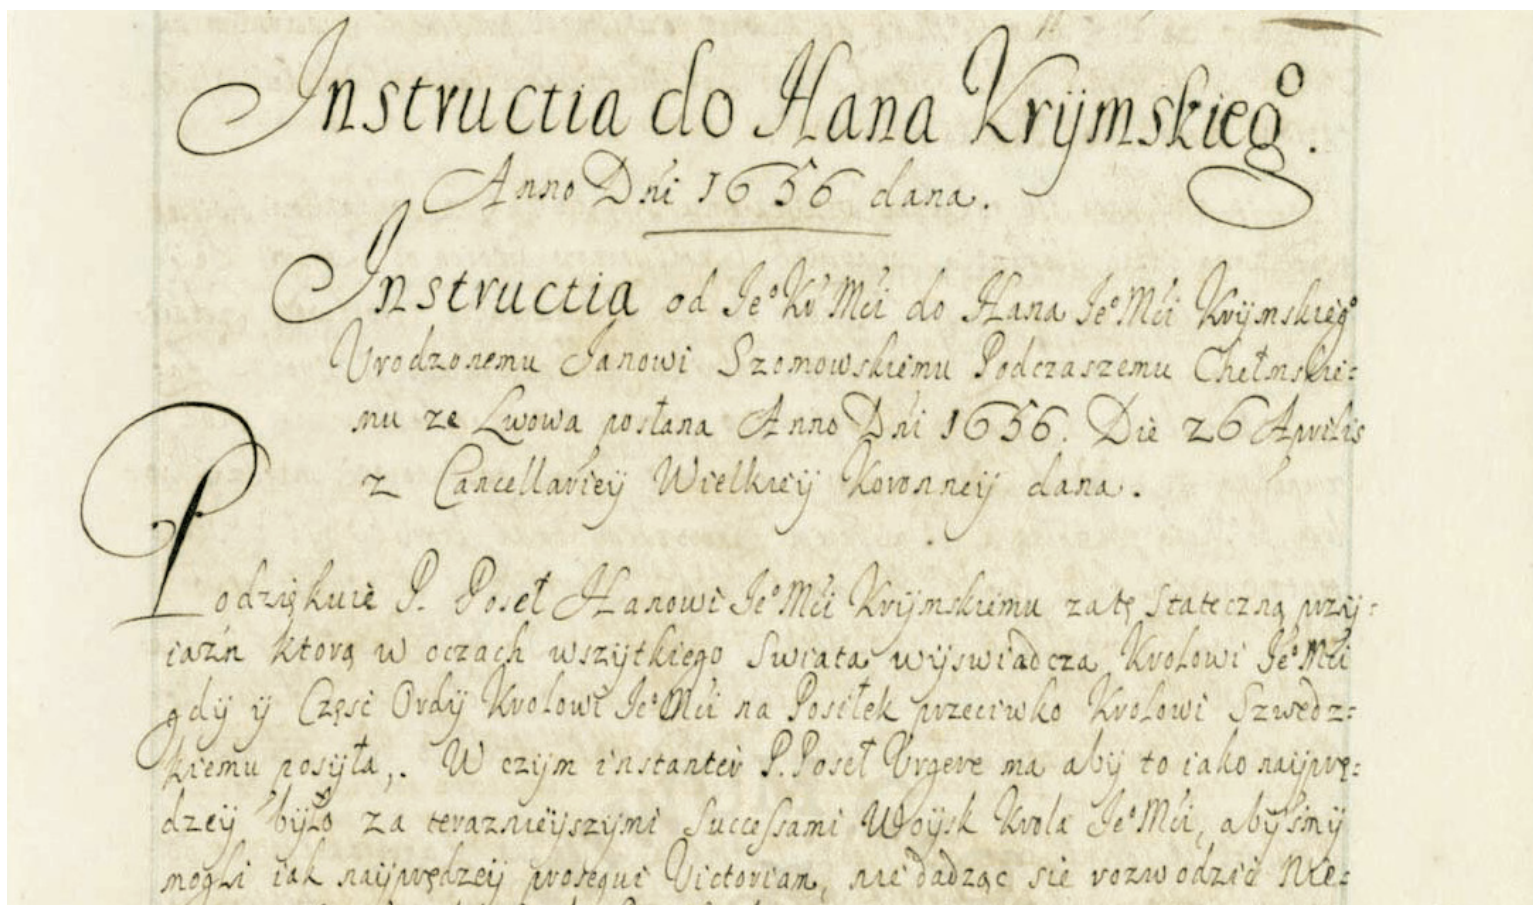 Instructia do Hana Krÿmskieg°.
Anno Dńi 1656 dana.
Instructia od Je° Kr Mći do Hana Je° Mći Krÿmskieg°
Urodzonemu Janowi Szomowskiemu Podczaszemu Chełmskie:
mu ze Lwowa posłana Anno Dńi 1656. Die 26 Aprilis
z Cancellarieÿ Wielkieÿ Koronneÿ dana.
Podziękuie P. Poseł Hanowi Je° Mći Krÿmskiemu za tę stateczną przÿ:
iaźn ktorą w oczach wszÿtkiego Swiata wÿswiadcza Krolowi Je° Mći
gdÿ ÿ Częsć Ordÿ Krolowi Je° Mći na Posiłek przeciwko Krolowi Szwedz:
kiemu posÿła,. W czÿm instanter P. Poseł Urgere ma abÿ to iako naÿprę:
dzeÿ bÿło za teraznieÿszÿmi Successami Woÿsk Krola Je° Mći, abÿsmÿ
mogli iak naÿprędzeÿ prosequi Victoriam, nie dadząc sie rozwodzić Nie: